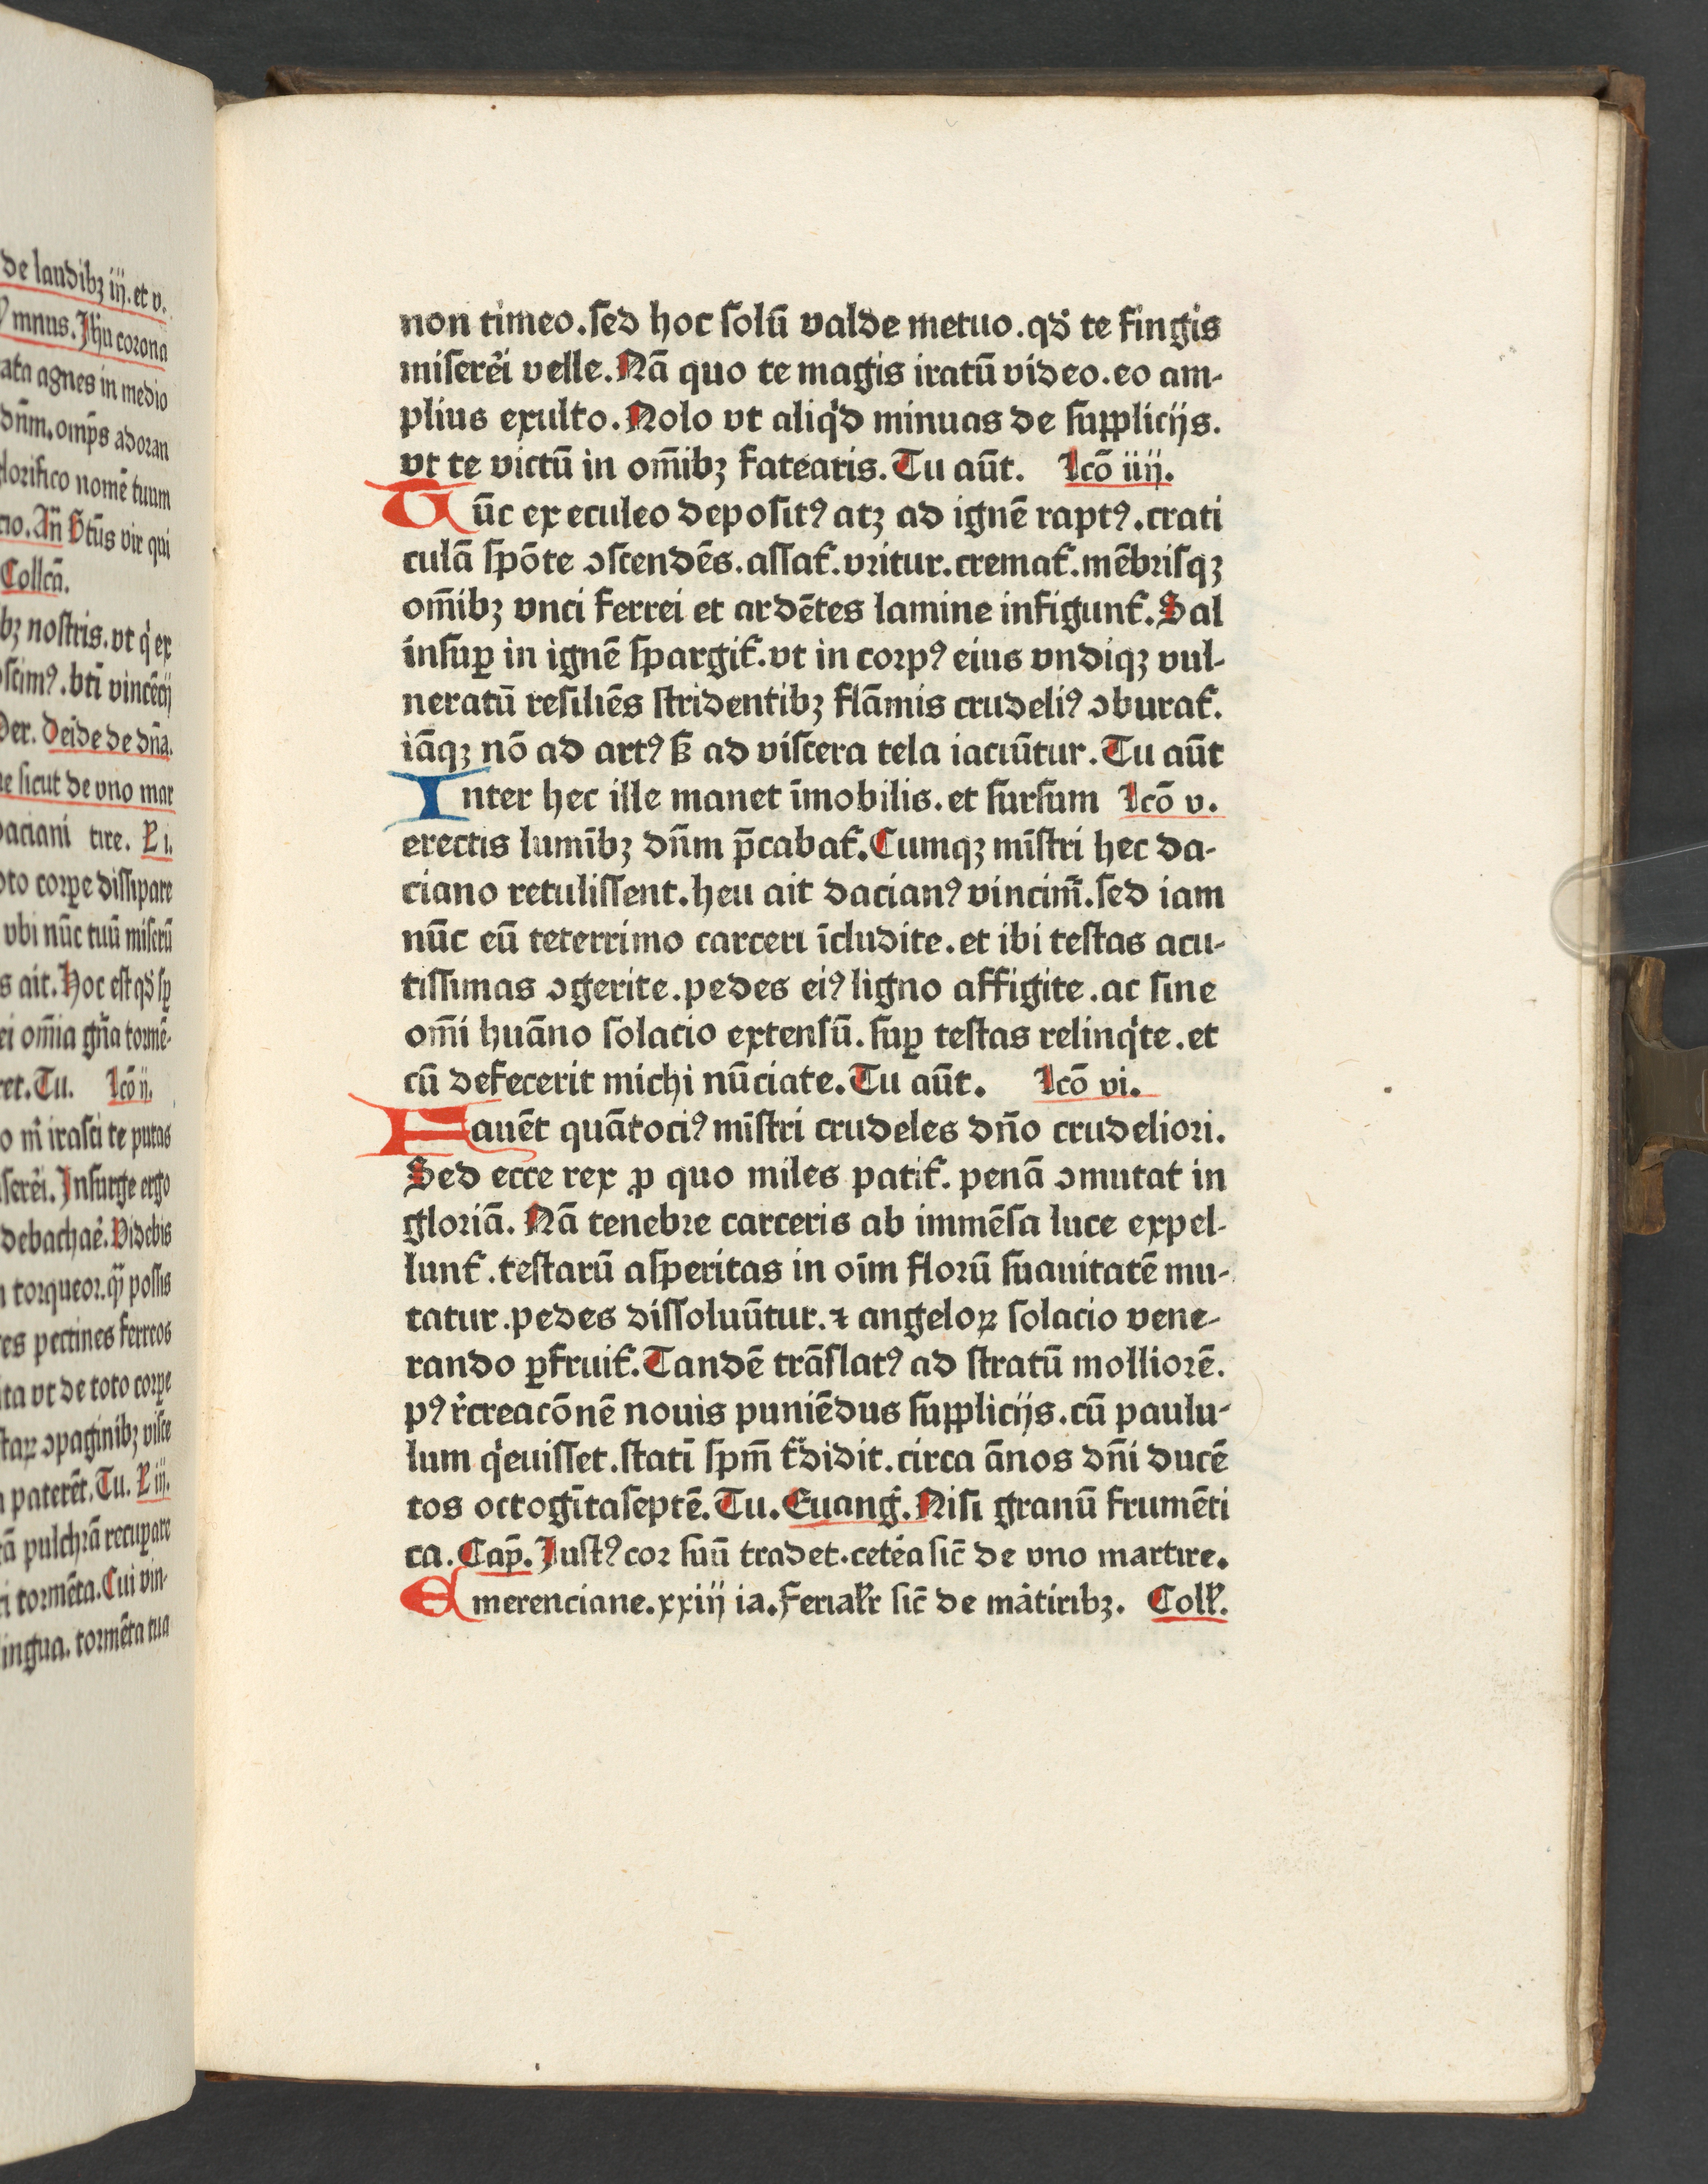 de laudibꝫ iij. et v.
ymnus. Jhū corona
ata agnes in medio
dn̄m. omp̄s adoran
glorifico nomē tuum
cio. An̄ Stūs vir qui
Collcā.
bꝫ nostris. vt q̇ ex
oscimꝰ. bti vincēcij
Der. Deīde de dn̄a.
ne sicut de vno mar
daciani tire. L i.
oto corꝑe dissipare
vbi nūc tuū miserū
s ait. Hoc est qđ sꝑ
ei om̄ia gn̄a tormē-
ret. Tu. Lcō ij.
o m̄ irasci te putas
serēi. Insurge ergo
debachaē. Videbis
torqueor. possis
res pectines ferreos
ita vt de toto corꝑe
staꝝ ↄpaginibꝫ visce
paterēt. Tu. L iij.
rā pulchrā recuꝑare
ri tormēta. Cui vin-
lingua. tormēta tua
non timeo. ſed hoc ſolū valde metuo. qđ te fingis
miſerēi velle. Nā quo te magis iratū video. eo am-
plius exulto. Nolo vt aliq̇d minuas de ſupplicijs.
vt te victū in om̄ibꝫ fatearis. Tu aūt. Lcō iiij.
Tūc ex eculeo depoſitꝰ atꝫ ad ignē raptꝰ. crati
culā ſpōte ↄſcendēs. aſſat᷑. vritur. cremat᷑. mēbriſqꝫ
om̄ibꝫ vnci ferrei et ardētes lamine infigunt᷑. Sal
inſuꝑ in ignē ſpargit᷑. vt in corpꝰ eius vndiqꝫ vul-
neratū reſiliēs ſtridentibꝫ flāmis crudeliꝰ ↄburat᷑.
iāqꝫ nō ad artꝰ ſꝫ ad viſcera tela iaciūtur. Tu aūt
Inter hec ille manet īmobilis. et ſurſum Lcō v.
erectis lumībꝫ dn̄m p̄cabat᷑. Cumqꝫ mīſtri hec da-
ciano retuliſſent. heu ait dacianꝰ vincim̄. ſed iam
nūc eū teterrimo carceri īcludite. et ibi teſtas acu-
tiſſimas ↄgerite. pedes eiꝰ ligno affigite. ac ſine
om̄i huāno ſolacio extenſū. ſuꝑ teſtas relinq̇te. et
cū defecerit michi nūciate. Tu aūt. Lcō vi.
Fauēt quātociꝰ mīſtri crudeles dn̄o crudeliori.
Sed ecce rex ꝓ quo miles patit᷑. penā ↄmutat in
gloriā. Nā tenebre carceris ab immēſa luce expel-
lunt᷑. teſtarū aſperitas in oīm florū ſuauitatē mu-
tatur. pedes diſſoluūtur. ⁊ angeloꝝ ſolacio vene-
rando ꝑfruit᷑. Tandē trāſlatꝰ ad ſtratū molliorē.
pꝰ r̄creacōnē nouis puniēdus ſupplicijs. cū paulu-
lum q̇euiſſet. ſtatī ſpm̄ t᷑didit. circa ānos dn̄i ducē
tos octogītaſeptē. Tu. Euang̃. Niſi granū frumēti
ca. Cap̄. Juſtꝰ cor ſuū tradet. cetēa ſic̄ de vno martire.
Emerenciane. xxiij ia. Ferialr̄ ſic̄ de mātiribꝫ. Coll̄.